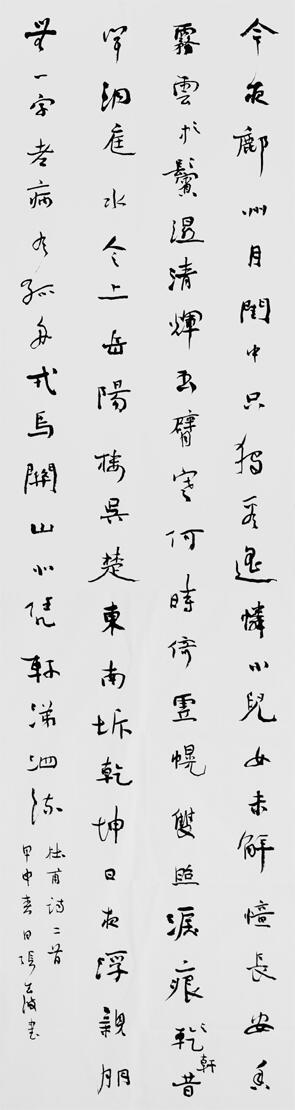 今夜鄜州月閨中只獨看遙憐小兒女未解憶長安香
霧雲於鬢濕清輝玉臂寒何時倚虛幌雙照淚痕乾昔
聞洞庭水今上岳陽樓吳楚東南坼乾坤日夜浮親朋
無一字老病有孤舟戎馬關山北凭軒涕泗流
杜甫詩二首
甲申春日張海書